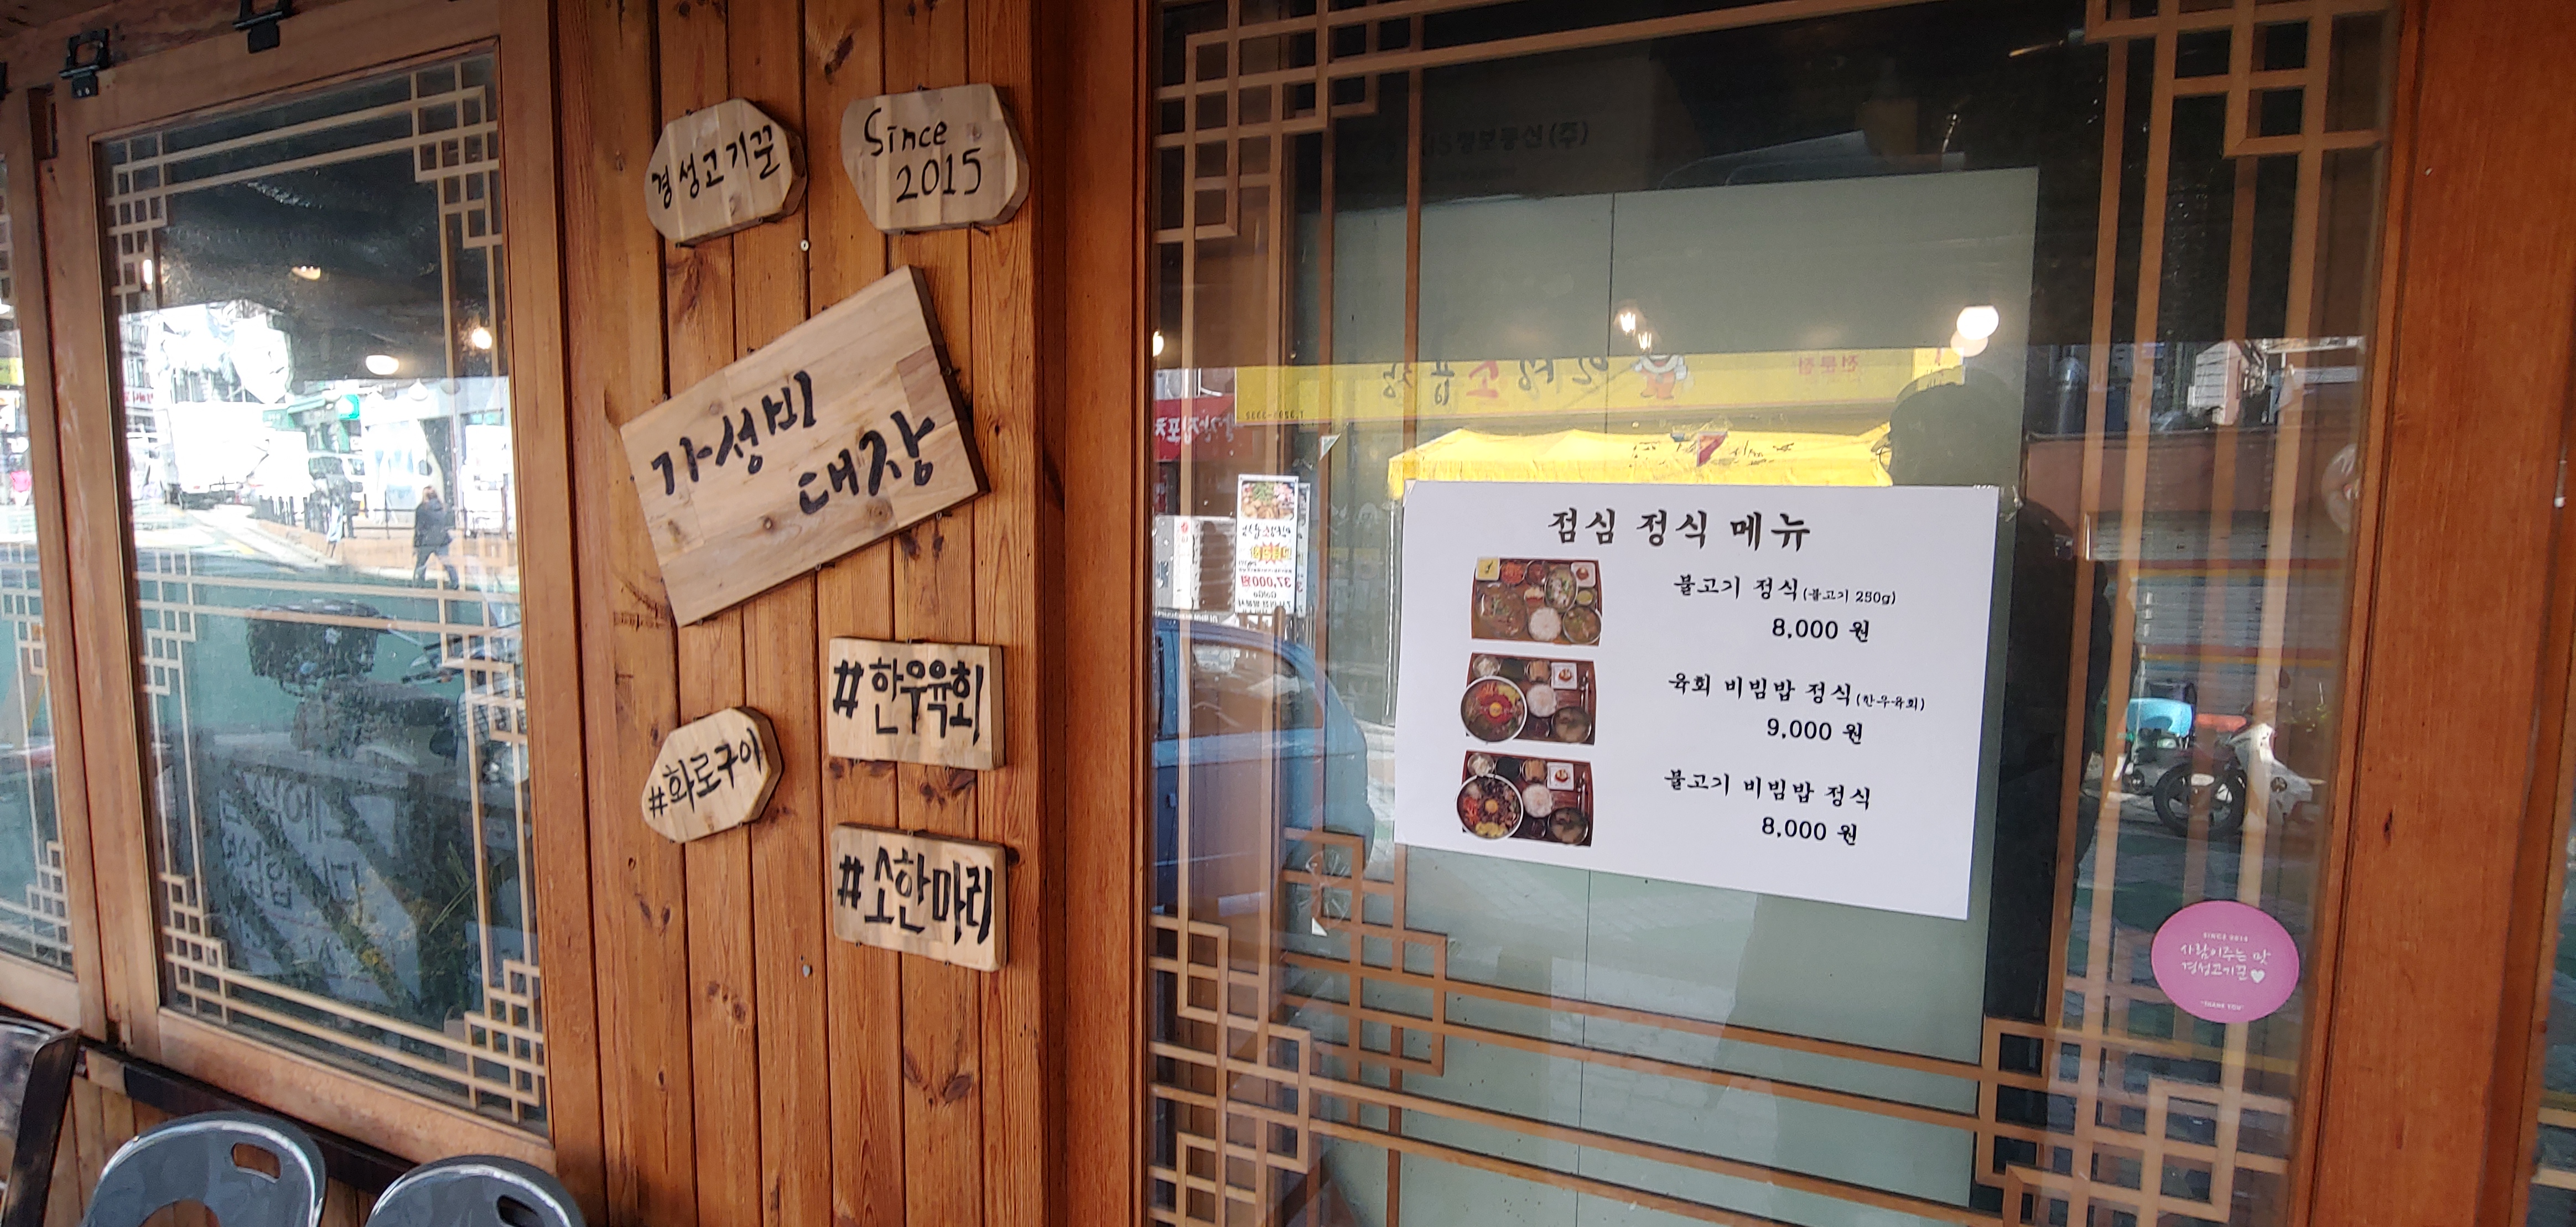 경성고기꾼
Since
2015
가성비
대장
#한우육회
#화로구이
#소한마리
점심 정식 메뉴
불고기 정식(불고기 250g)
8,000 원
육회 비빔밥 정식(한우육회)
9,000 원
불고기 비빔밥 정식
8,000 원
사람이주는 맛
경성고기꾼
"THANK YOU"
정보통신(주)
전문점
37,000원